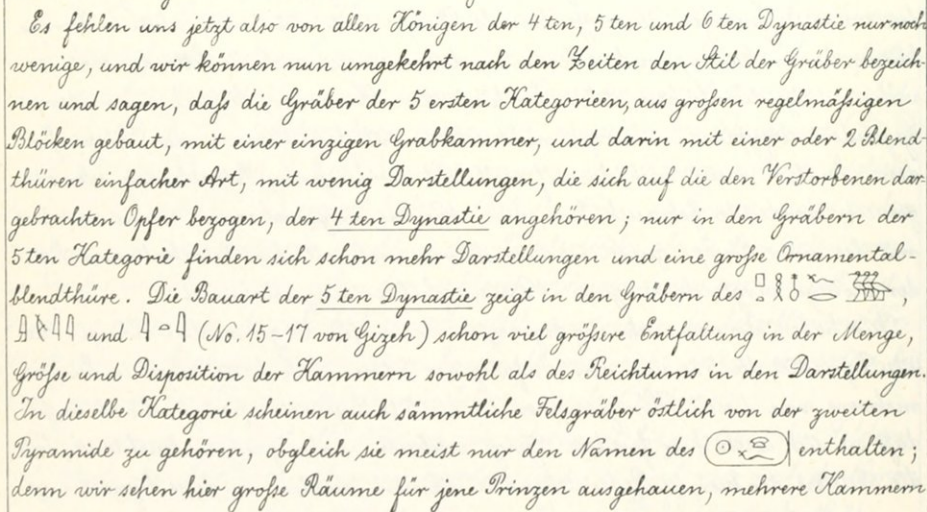 Es fehlen uns jetzt also von allen Königen der 4 ten, 5 ten und 6 ten Dynastie nur noch
wenige, und wir können nun umgekehrt nach den Zeiten den Stil der Gräber bezeich-
nen und sagen, daſs die Gräber der 5 ersten Kategorieen, aus groſsen regelmäſsigen
Blöcken gebaut, mit einer einzigen Grabkammer, und darin mit einer oder 2 Blend-
thüren einfacher Art, mit wenig Darstellungen, die sich auf die den Verstorbenen dar-
gebrachten Opfer bezogen, der 4 ten Dynastie angehören; nur in den Gräbern der
5 ten Kategorie finden sich schon mehr Darstellungen und eine groſse Ornamental-
blendthüre. Die Bauart der 5 ten Dynastie zeigt in den Gräbern des ,
und (No. 15-17 von Gizeh) schon viel gröſsere Entfaltung in der Menge,
Gröſse und Disposition der Kammern sowohl als des Reichtums in den Darstellungen.
In dieselbe Kategorie scheinen auch sämmtliche Felsgräber östlich von der zweiten
Pyramide zu gehören, obgleich sie meist nur den Namen des enthalten;
denn wir sehen hier groſse Räume für jene Prinzen ausgehauen, mehrere Kammern